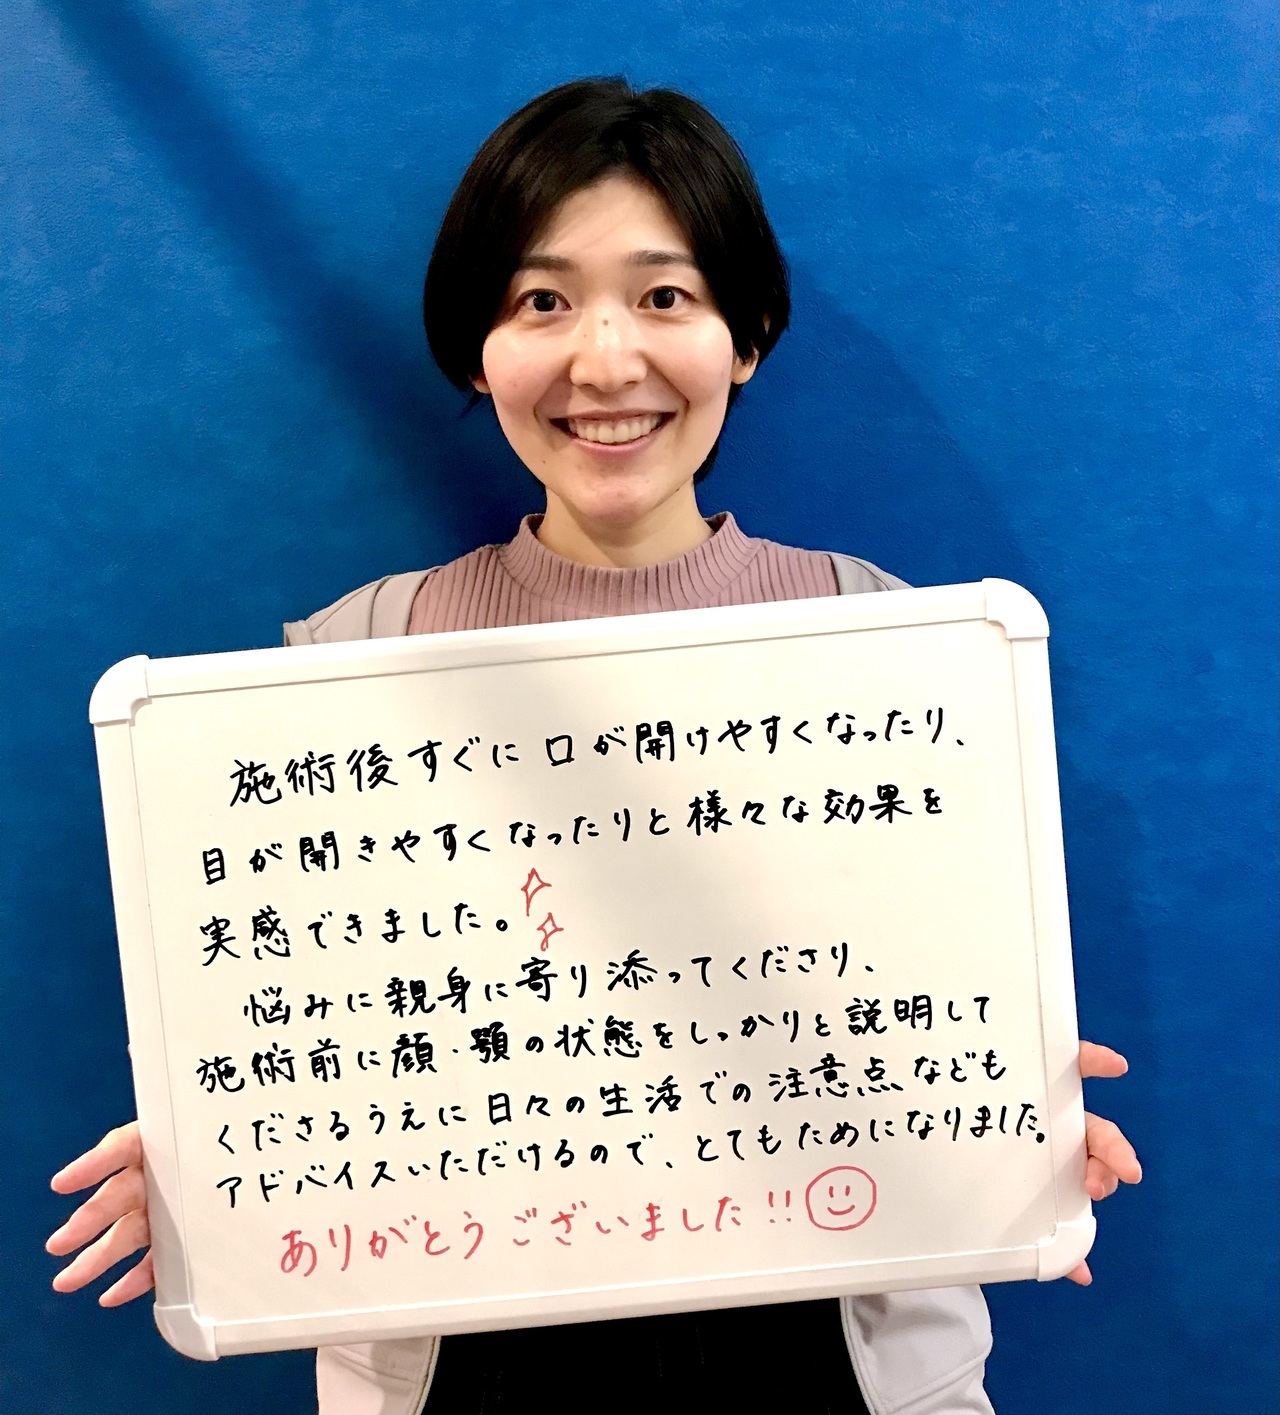 施術後すぐに口が開けやすくなったり、
目が開きやすくなったりと様々な効果を
実感できました。
悩みに親身に寄り添ってくださり、
施術前に顔・顎の状態をしっかりと説明して
くださるうえに日々の生活での注意点なども
アドバイスいただけるので、とてもためになりました。
ありがとうございました!!